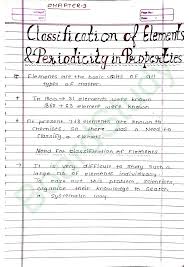 CHAPTER-3
Page No.
Date
Classification of Elements
& Periodicity in Properties
Elements are the basic units of all
types of matter.
In 1800 → 31 elements were known
1865 → 63 elements were known
At present 114 elements are known to
chemises. So there was a need to
classify element
Need for classification of elements
It is very difficult to study such a
large no of elements individually.
To ease out this problem, scientists
organise their knowledge to search
a systematic way